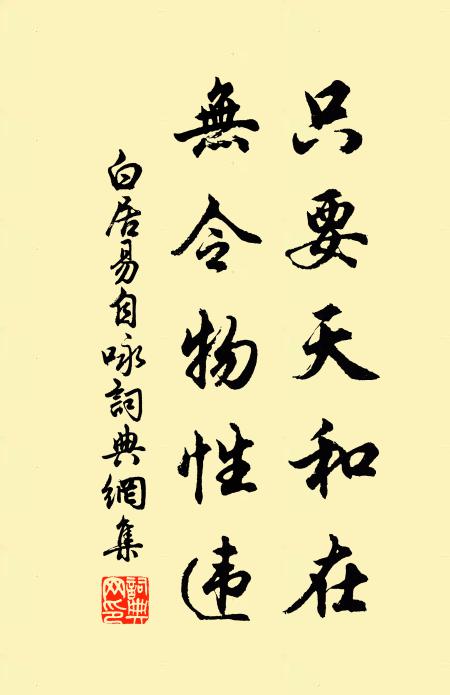 只要天和在
無令物性违
白居易自咏詞典網集
詞典网印